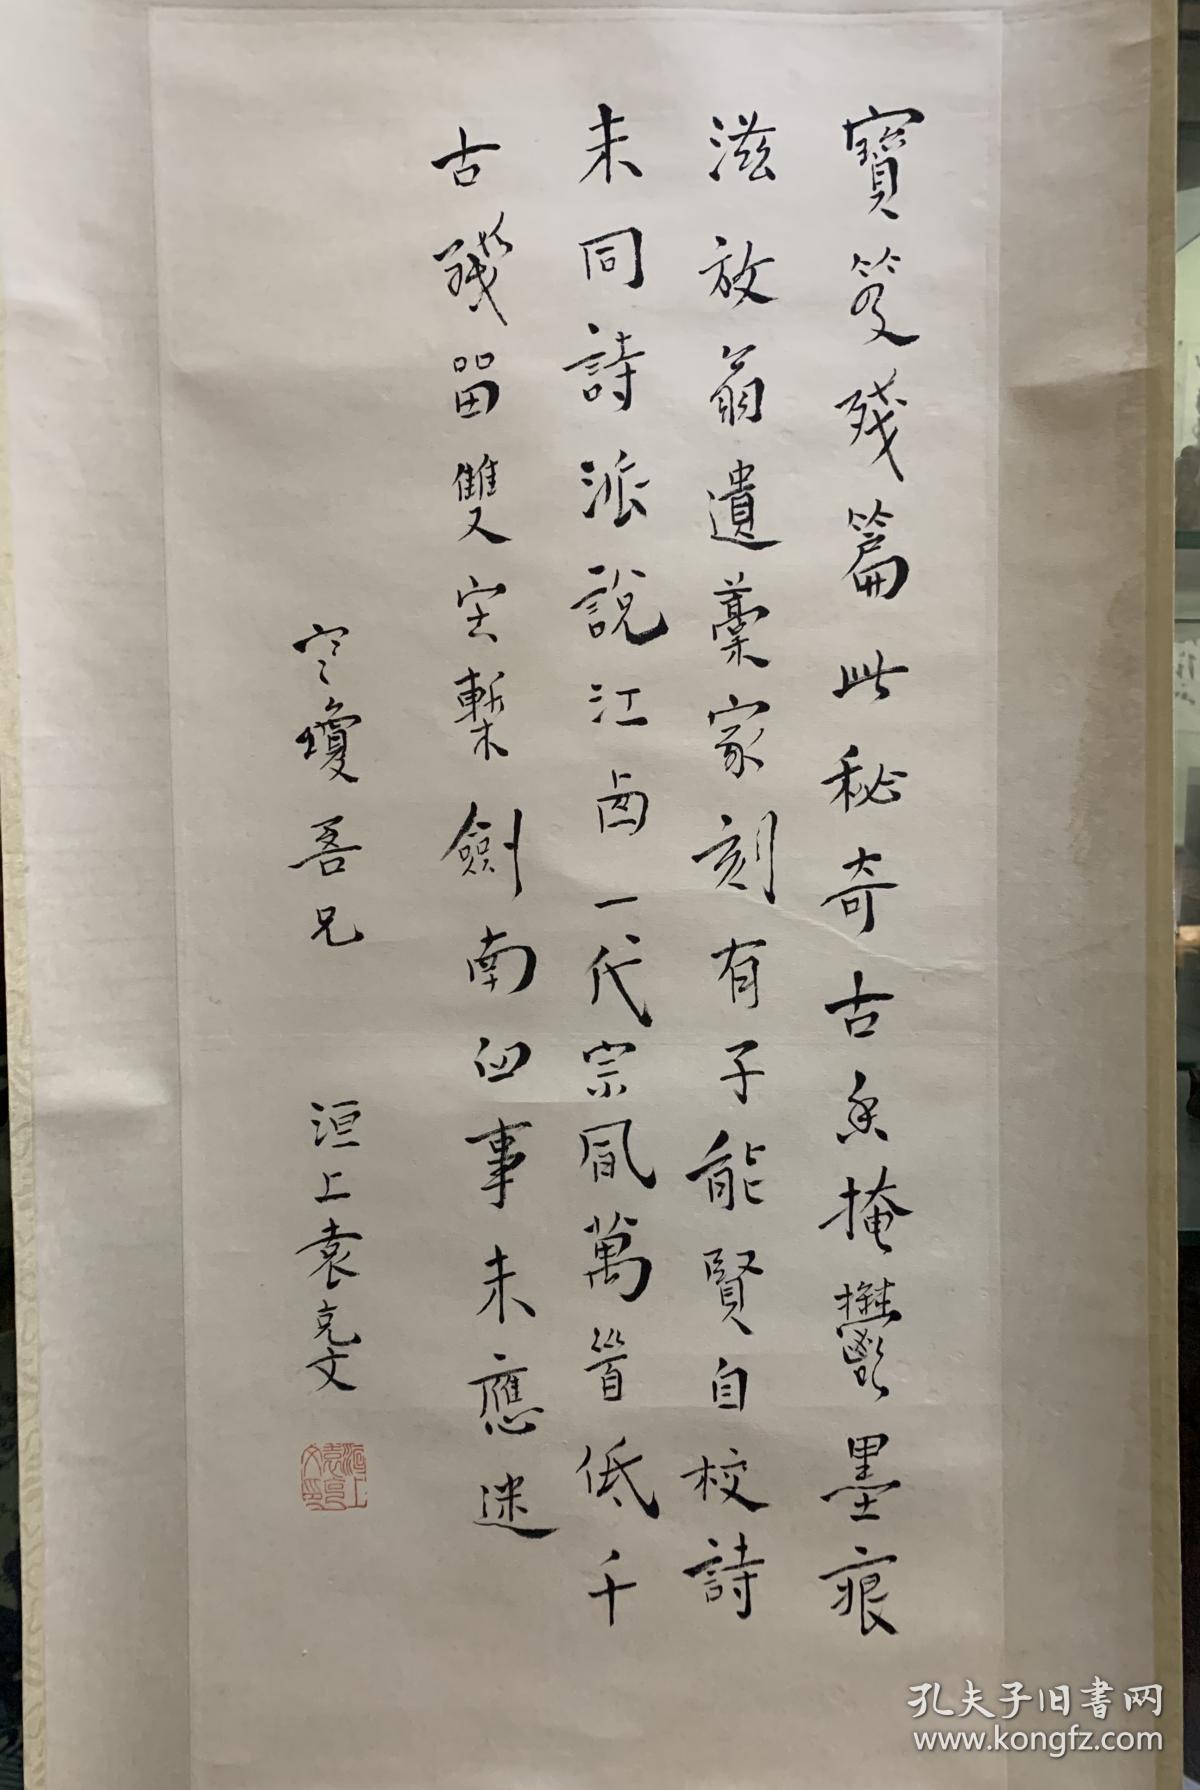 寶笈殘篇此秘奇古香掩鬱墨痕
滋放翁遺藁家刻有子能賢自校詩
未同詩派說江西一代宗風萬首低千
古殘留雙宋槧劍南四事未應迷
寒瓊吾兄 洹上袁克文
洹上袁克文印
孔夫子旧書网
www.kongfz.com